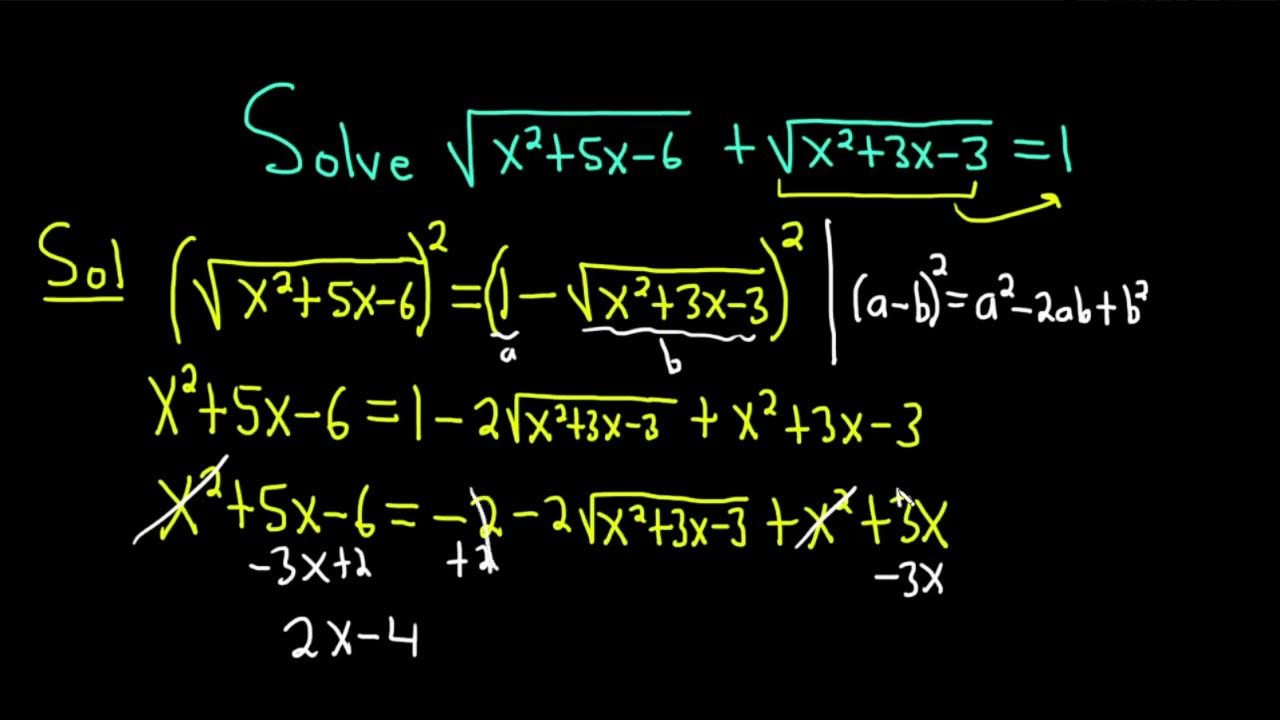 Solve √(x²+5x-6) + √(x²+3x-3) = 1
Sol (√(x²+5x-6))² = (1 - √(x²+3x-3))² | (a-b)² = a²-2ab+b²
a b
x²+5x-6 = 1-2√(x²+3x-3) + x²+3x-3
x²+5x-6 = -2-2√(x²+3x-3) + x²+3x
-3x+2 +2 -3x
2x-4